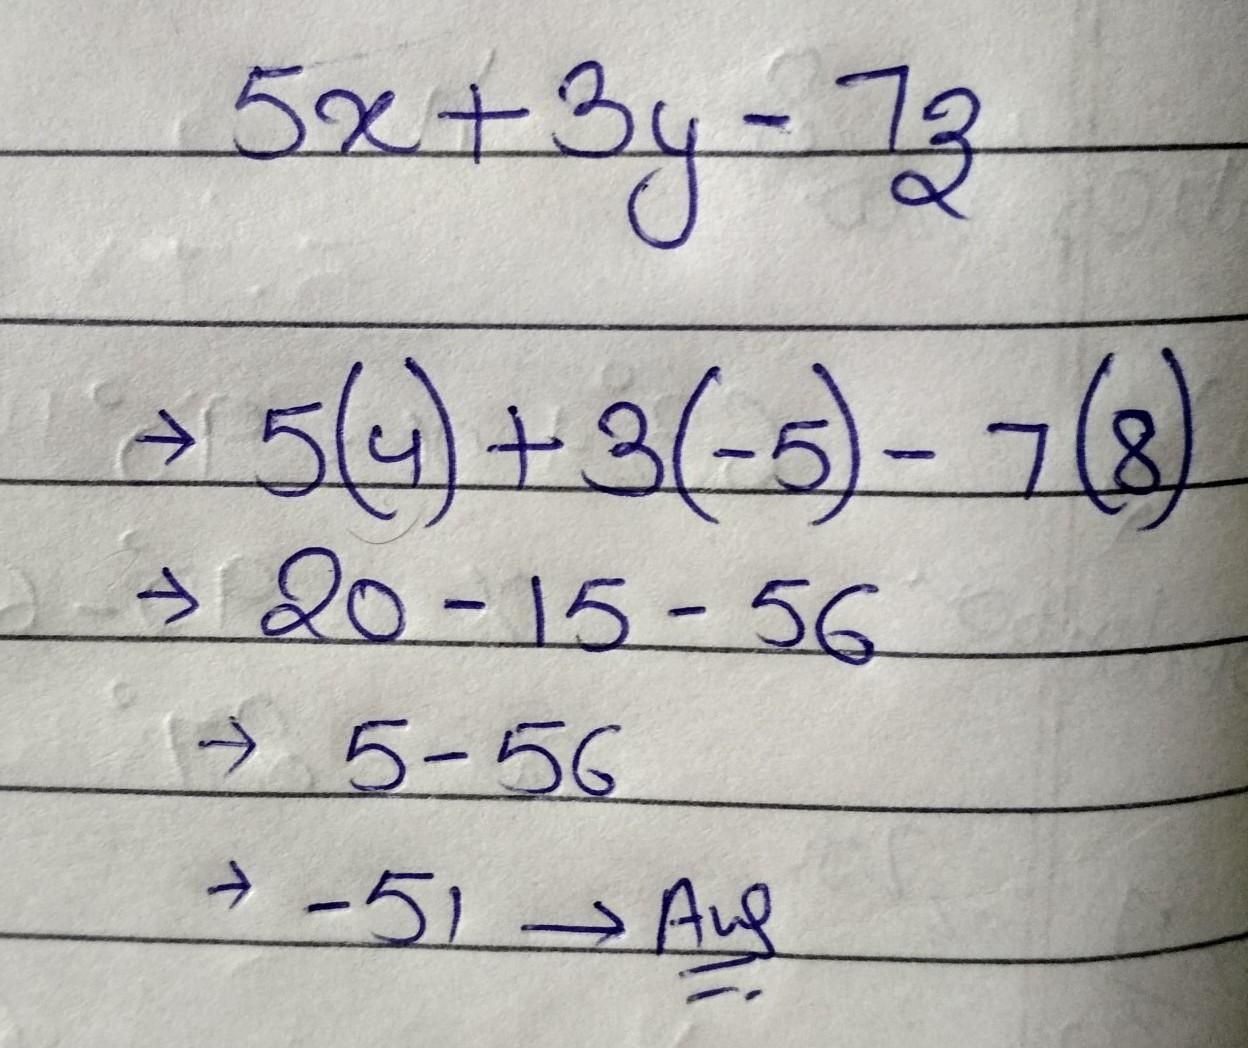 5x + 3y - 7z
→ 5(4) + 3(-5) - 7(8)
→ 20 - 15 - 56
→ 5 - 56
→ -51 → Ans